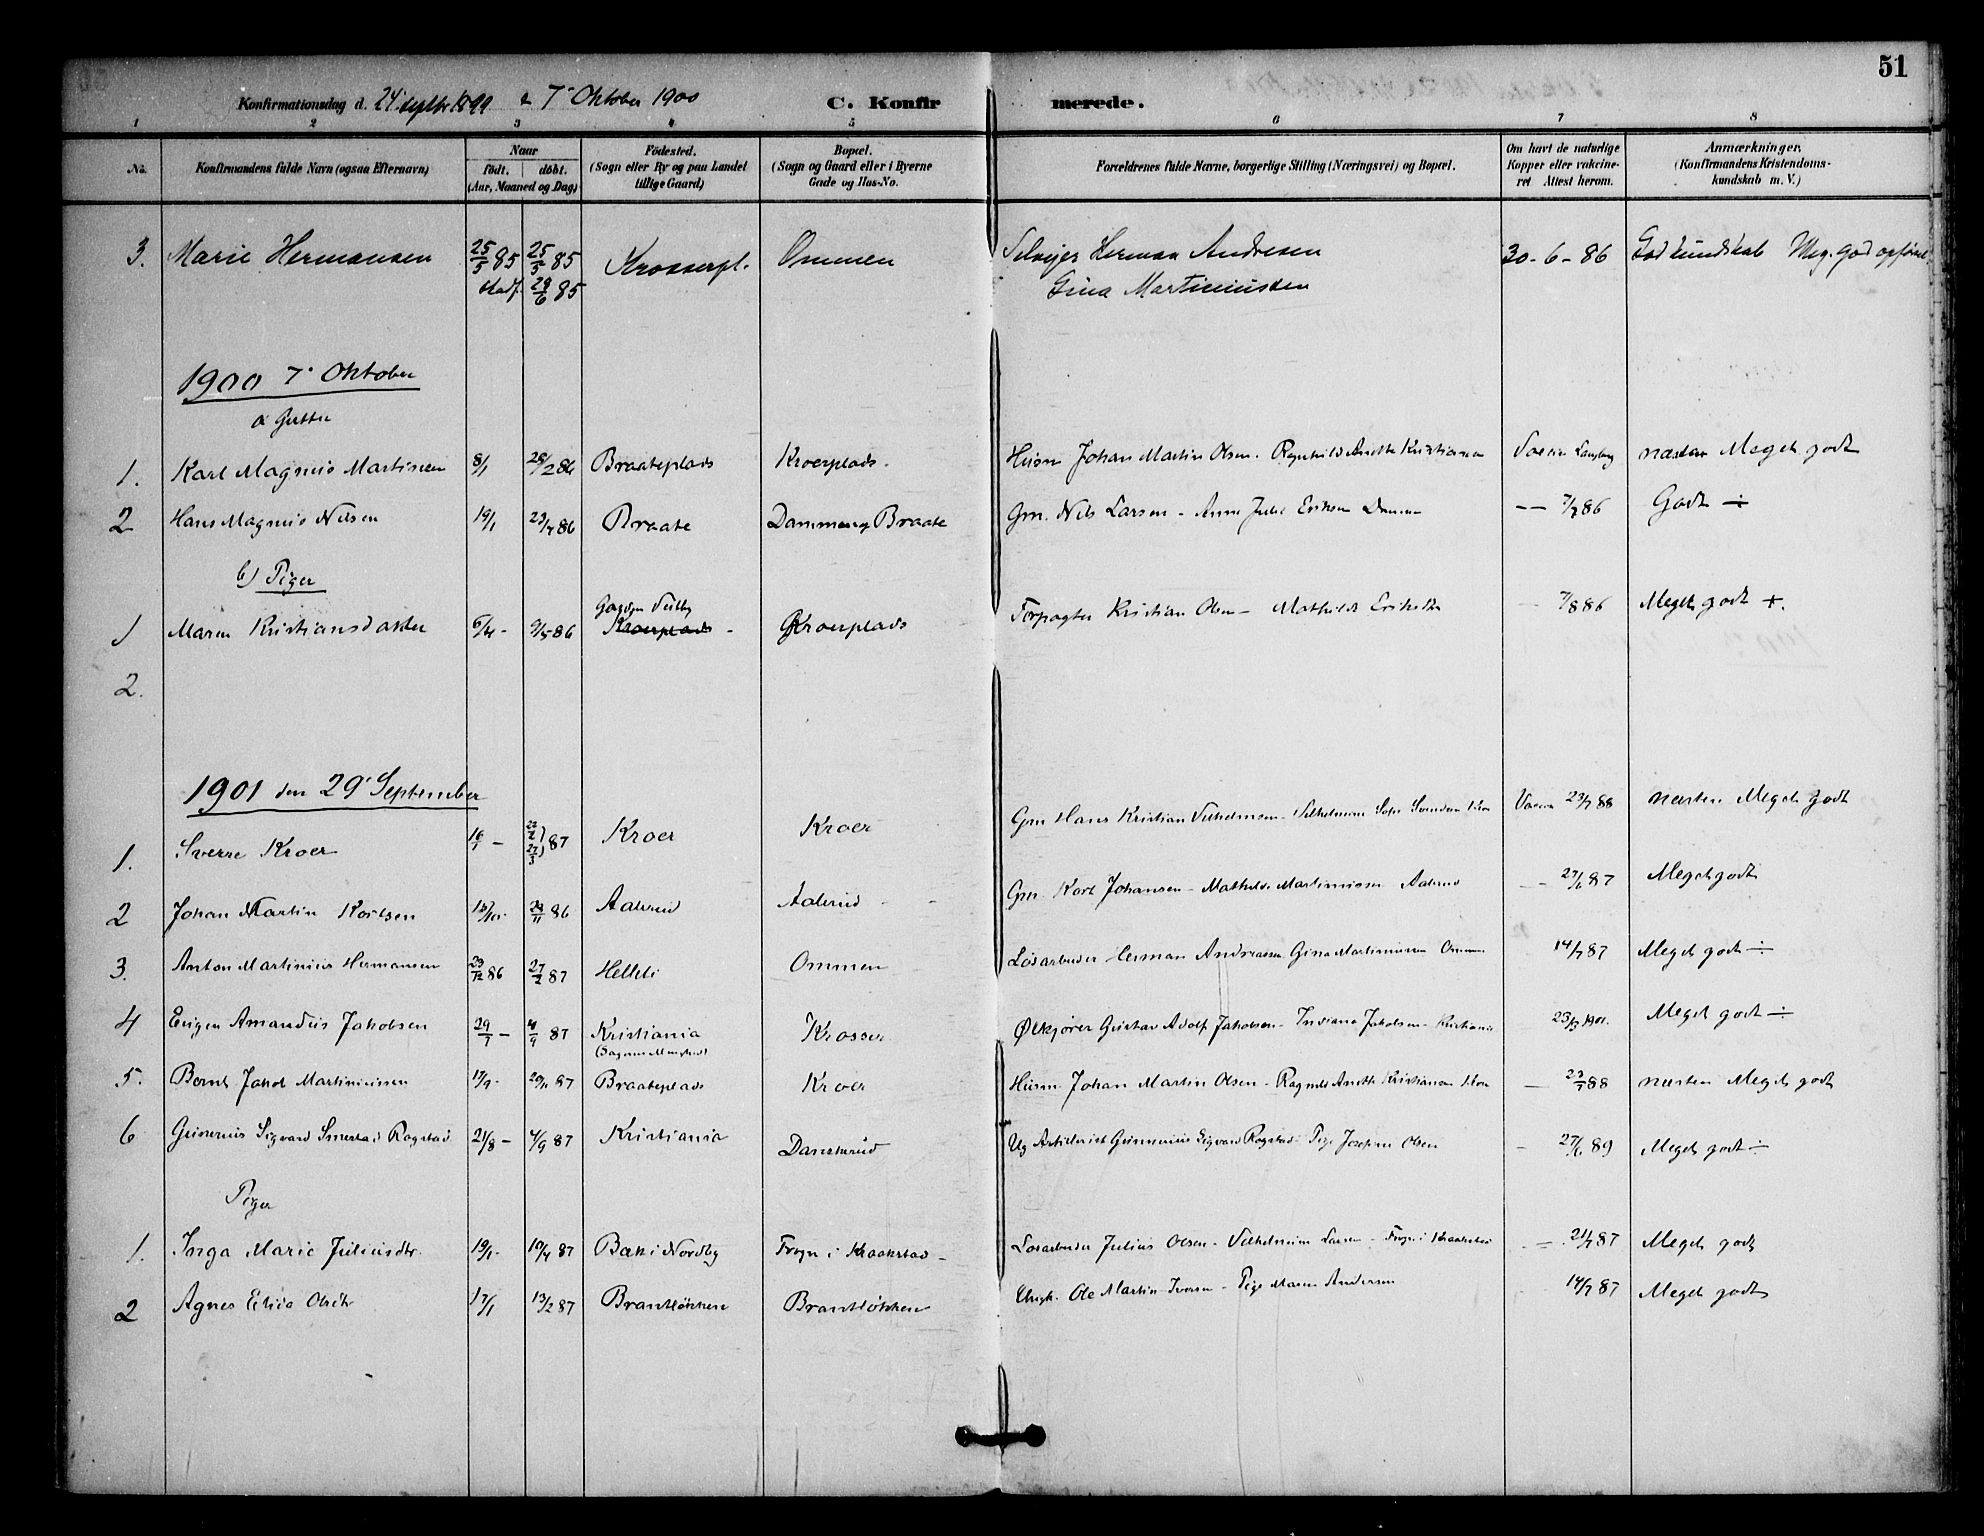 51
Konfirmationsdag d. 24 septbr 1899 & 7 Oktober 1900 C. Konfirmerede.
1 2 3 4 5 6 7 8
No.
Konfirmandens fulde Navn (ogsaa Efternavn)
Naar
født. døbt.
(Aar, Maaned og Dag)
Fødested.
(Sogn eller By og paa Landet
tillige Gaard)
Bopæl.
(Sogn og Gaard eller i Byerne
Gade og Hus-No.
Forældrenes fulde Navne, borgerlige Stilling (Næringsvei) og Bopæl.
Om havt de naturlige
Kopper eller vakcine-
ret Attest herom.
Anmærkninger.
(Konfirmandens Kristendoms-
kundskab m. V.)
3. Marie Hermansen 25/5 85 25/5 85 Krosserpl. Ommen Selveier Herman Andresen 30-6-86 God kundskab Meg. god opførsel
stadf. 29/6 85 Gina Martiniussen
1900 7 Oktober
a Gutter
1. Karl Magnus Martinsen 8/1 28/2 86 Braateplads Kroerplads. Husm Johan Martin Olsen. Ragnhild Anette Kristiansen næsten Meget godt
2 Hans Magnus Nilsen 19/1 Braate Dammen Braate Gm. Nils Larsen - Anne Julie Eriksen Dammen -- 7/7 86 Godt ÷
b) Piger
1 Maren Kristiansdatter 6/4 - 9/5 86 Kroerplads - Kroerplads Forpagter Kristian Olsen - Mathilde 7/8 86 Meget godt +.
2.
1901 den 29 September
1. Sverre Kroer 16/1 - 27/3 87 Kroer Kroer Gm Hans Kristian Vilhelmsen - 23/7 88 næsten Meget godt
2 Johan Martin Karlsen 86 Aalerud Aalerud Gm. Karl Johansen - Mathilde Martiniussen Aalerud -- 27/6 87 Meget godt
3. Anton Martinius Hermansen 23/12 86 27/2 87 Helleli Ommen Løsarbeider Herman Andreassen. Gina Martiniussen Ommen 14/7 87 Meget godt ÷
4 Eugen Amandus Jakobsen 29/7 - 4/9 87 Kristiania Krosser Ølkjører Gustav Adolf Jakobsen - Indiana Jakobsen - Kristiania 23/3 1901. Meget godt ÷
5. Bernt Jakob Martiniussen 17/9 - 20/11 87 Braateplads Kroer Husm Johan Martin Olsen - Ragnild Anette Kristiansen Kroer - 23/7 88 næsten Meget godt
6 Sigvard Smestad Rogstad 21/8 - 4/9 87 Kristiania Danskerud Ug Sigvard Rogstad - Pige Josefine Olsen - 27/6 89 Meget godt ÷
Piger
1. Inga Marie Juliusdtr. 19/1 - 10/4 87 Bæk i Nordby Frogn i Kraakstad - Løsarbeider Julius Olsen - Vilhelmine Larsen - Frogn i Kraakstad 21/7 87 Meget godt
2 Agnes Elida Olsdtr 17/1 13/2 87 Brantløkken Brantløkken Ungk. Ole Martin Iversen - Pige Maren Andersen 14/7 87 Meget godt